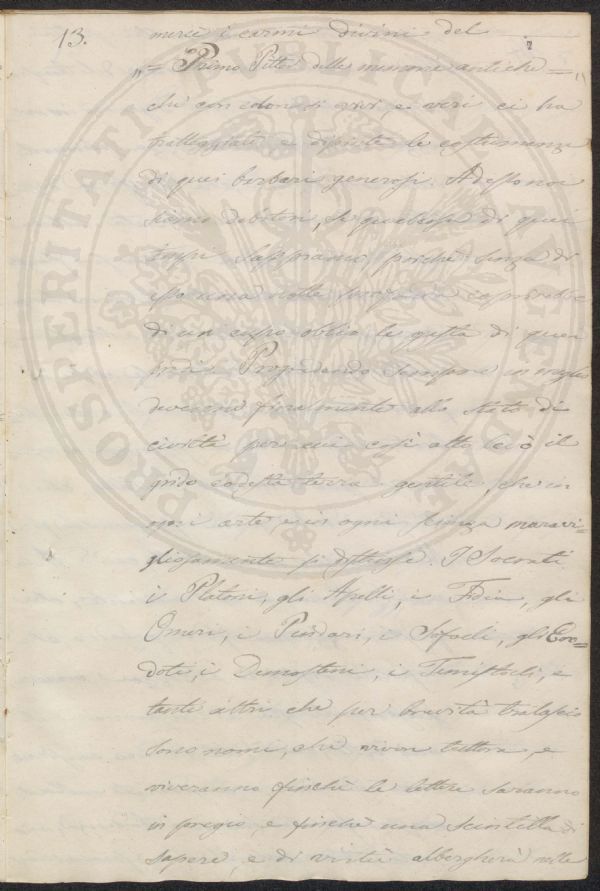 13.
mercè i carmi divini del
„= Primo Pittor delle memorie antiche =„
che con colori sì vivi, e veri ci ha
tratteggiate e dipinte le costumanze
di quei barbari generosi. Adesso noi
siamo debitori, se qualcosa di quei
tempi sappiamo, poichè senza di
esso una notte profonda coprirebbe
di un cupo oblio le gesta di quei
prodi. Progredendo sempre in meglio
devennero finalmente allo stato di
civiltà per cui così alto levò il
grido codesta terra gentile, che in
ogni arte, e in ogni scienza maravi=
gliosamente si distinse. I Socrati,
i Platoni, gli Apelli, i Fidia, gli
Omeri, i Pindari, i Sofocli, gli Ero=
doti, i Demosteni, i Temistocli, e
tanti altri che per brevità tralascio
sono nomi, che vivon tuttora, e
viveranno finchè le lettere saranno
in pregio e finchè una scintilla di
sapere, e di virtù albergherà nelle
PROSPERITATI PUBLICAE AUGENDAE